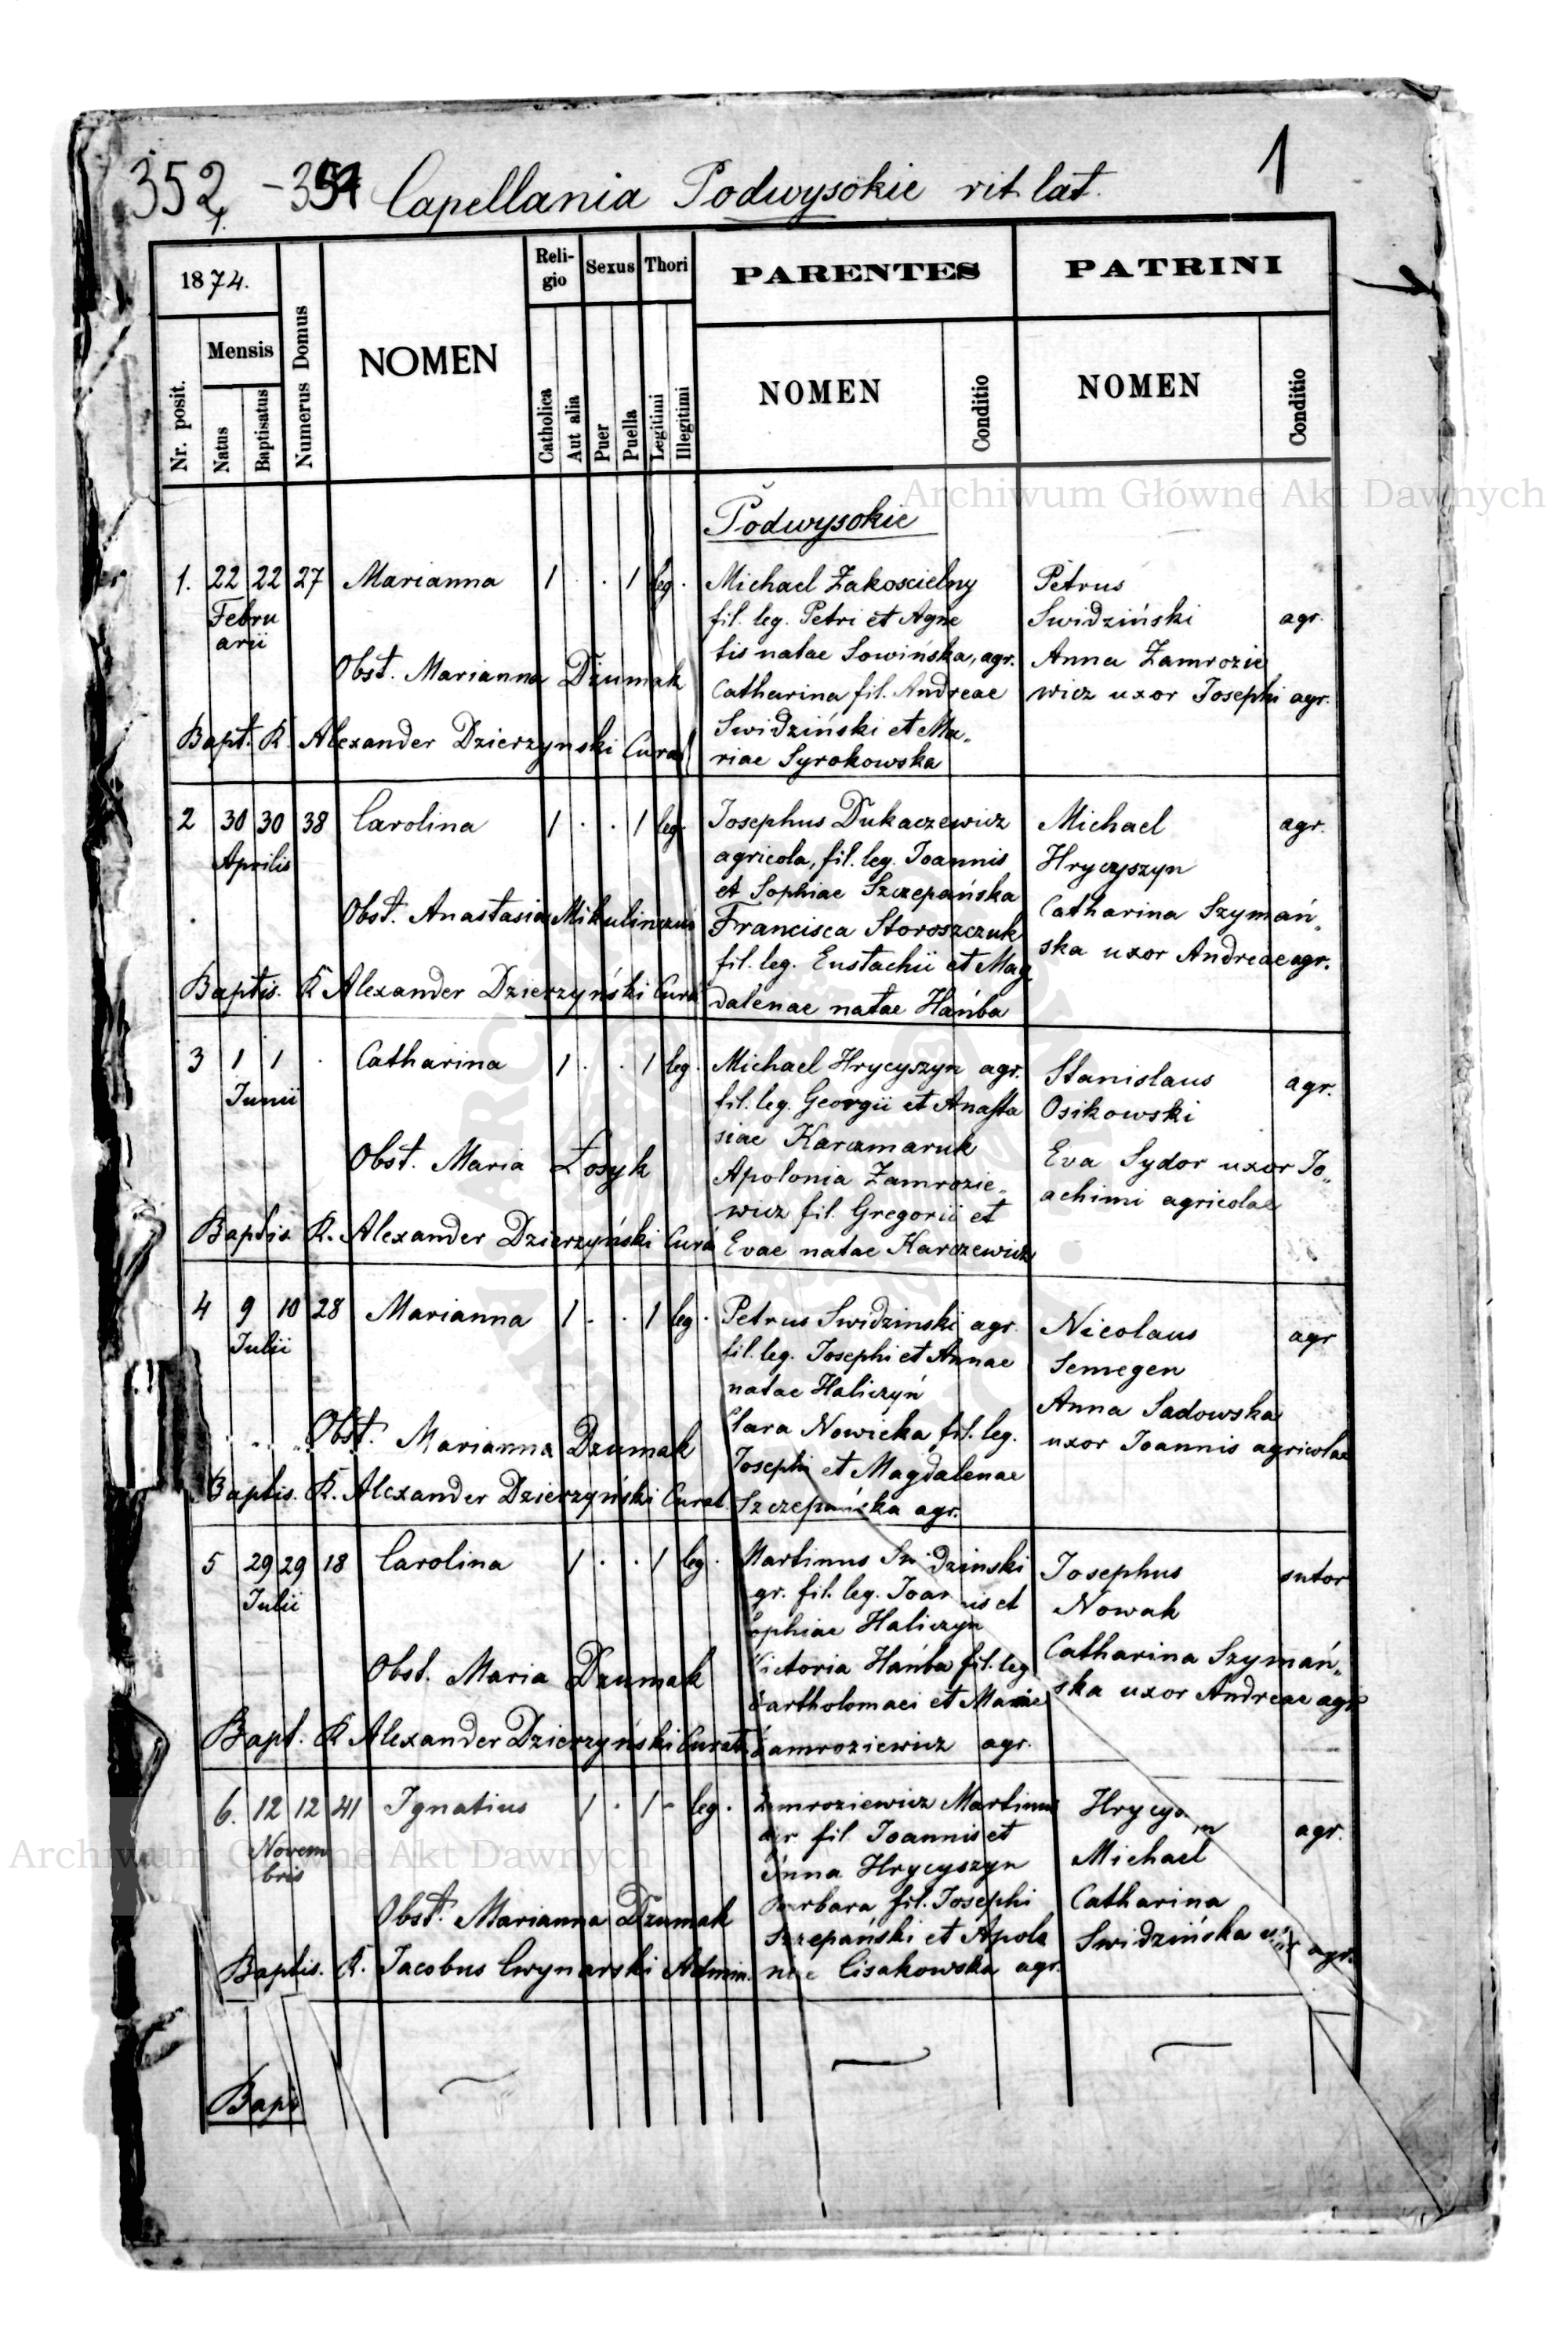 352 - 354 Capellania Podwysokie rit lat. 1
1874.
Nr. posit.
Mensis
Natus
Baptisatus
Numerus Domus
NOMEN
Religio
Catholica
Aut alia
Sexus
Puer
Puella
Thori
Legitimi
Illegitimi
PARENTES
NOMEN
Conditio
PATRINI
NOMEN
Conditio
Archiwum Główne Akt Dawnych
Podwysokie
1. 22 22 27 Marianna 1 . . 1 leg.
Febru
arii
Obst. Marianna Dzumak
Bapt. K. Alexander Dzierzynski Curat
Michael Zakoscielny
fil. leg. Petri et Agne
tis natae Sowińska, agr.
Catharina fil. Andreae
Swidziński et Ma„
riae Syrokowska
Petrus
Swidziński agr.
Anna Zamrozie
wicz uxor Josephi agr.
2 30 30 38 Carolina 1 . . 1 leg.
Aprilis
Obst. Anastasia
Baptis. K Alexander Dzierzyński Cura
Josephus Dukaczewicz
agricola, fil. leg. Joannis
et Sophiae Szczepańska
Francisca Storoszczuk
fil. leg. Eustachii et Mag
dalenae natae Hańba
Michael agr.
Hrycyszyn
Catharina Szymań„
ska uxor Andreae agr.
3 1 1 . Catharina 1 . . 1 leg.
Junii
Obst. Maria Łosyk
Baptis. K. Alexander Dzierzyński Cura
Michael Hrycyszyn agr.
fil. leg. Georgii et Anasta
siae Karczmaruk
Apolonia Zamrozie„
wicz fil. Gregorii et
Evae natae Karczewicz
Stanislaus agr.
Osikowski
Eva Sydor uxor Jo„
achimi agricolae
4 9 10 28 Marianna 1 . . 1 leg.
Julii
Obst. Marianna Dzumak
Baptis. K. Alexander Dzierzyński Curat
Petrus Swidzinski agr.
fil. leg. Josephi et Annae
natae Haliczyń
Clara Nowicka fil. leg.
Josephi et Magdalenae
Szczepańska agr.
Nicolaus agr
Semegen
Anna Sadowska
uxor Joannis agricolae
5 29 29 18 Carolina 1 . . 1 leg.
Julii
Obst. Maria Dzumak
Bapt. K Alexander Dzierzyński Curat
Martinus Swidzinski
gr. fil. leg. Joannis et
ophiae Haliczyn
Victoria Hańba fil. leg
Bartholomaei et Mariae
Zamroziewicz agr.
Josephus sutor
Nowak
Catharina Szymań„
ska uxor Andreae agr
6. 12 12 41 Ignatius 1 . 1 - leg.
Novem
bris
Obst. Marianna Dzumak
Baptis. K. Jacobus Cwynarski Admin.
Zamroziewicz Martinus
agr. fil Joannis et
Anna Hrycyszyn
Barbara fil. Josephi
Szczepański et Apolo
niae Cisakowska agr.
Hrycyszyn agr.
Michael
Catharina
Swidzińska uxor agr.
Archiwum Główne Akt Dawnych
Bapt